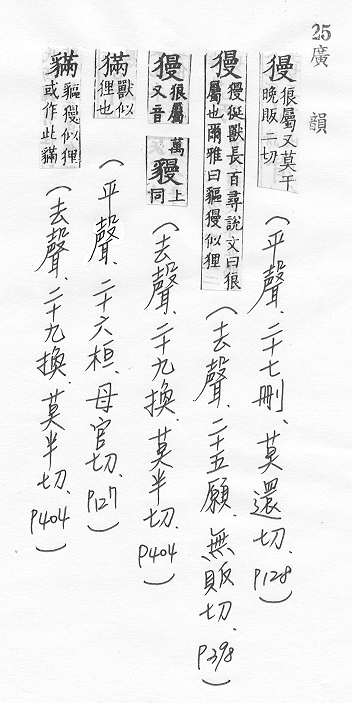 25
廣韻
獌 狼屬又莫干晚販二切 (平聲、二十七刪、莫還切、P128)
獌 獌狿獸長百尋說文曰狼屬也爾雅曰貙獌似狸 (去聲、二十五願、無販切、P398)
獌 狼屬又音萬 上同 (去聲、二十九換、莫半切、P404)
獸似狸也 (平聲、二十六桓、母官切、P127)
貙獌似狸或作此 (去聲、二十九換、莫半切、P404)